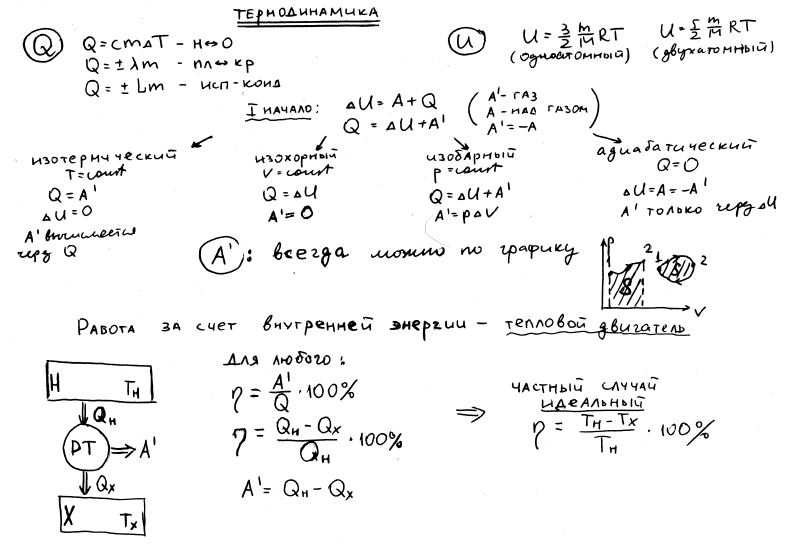 ТЕРМОДИНАМИКА
Q
Q = cmΔT - н↔о
Q = ± λm - пл↔кр
Q = ± Lm - исп-конд
U
U = 3/2 m/M RT
(одноатомный)
U = 5/2 m/M RT
(двухатомный)
I НАЧАЛО:
ΔU = A + Q
Q = ΔU + A'
A' - ГАЗ
A - НАД ГАЗОМ
A' = -A
изотермический
T = const
Q = A'
ΔU = 0
A' вычисляется
через Q
изохорный
V = const
Q = ΔU
A' = 0
изобарный
p = const
Q = ΔU + A'
A' = pΔV
адиабатический
Q = 0
ΔU = A = -A'
A' только через ΔU
A' : всегда можно по графику
P
1 2
S
1 S 2
V
РАБОТА ЗА СЧЕТ ВНУТРЕННЕЙ ЭНЕРГИИ - ТЕПЛОВОЙ ДВИГАТЕЛЬ
H Tн
Qн
РТ ⇒ A'
Qх
X Tх
Для любого:
η = A'/Q · 100%
η = (Qн - Qх)/Qн · 100%
A' = Qн - Qх
⇒
ЧАСТНЫЙ СЛУЧАЙ
ИДЕАЛЬНЫЙ
η = (Tн - Tх)/Tн · 100%